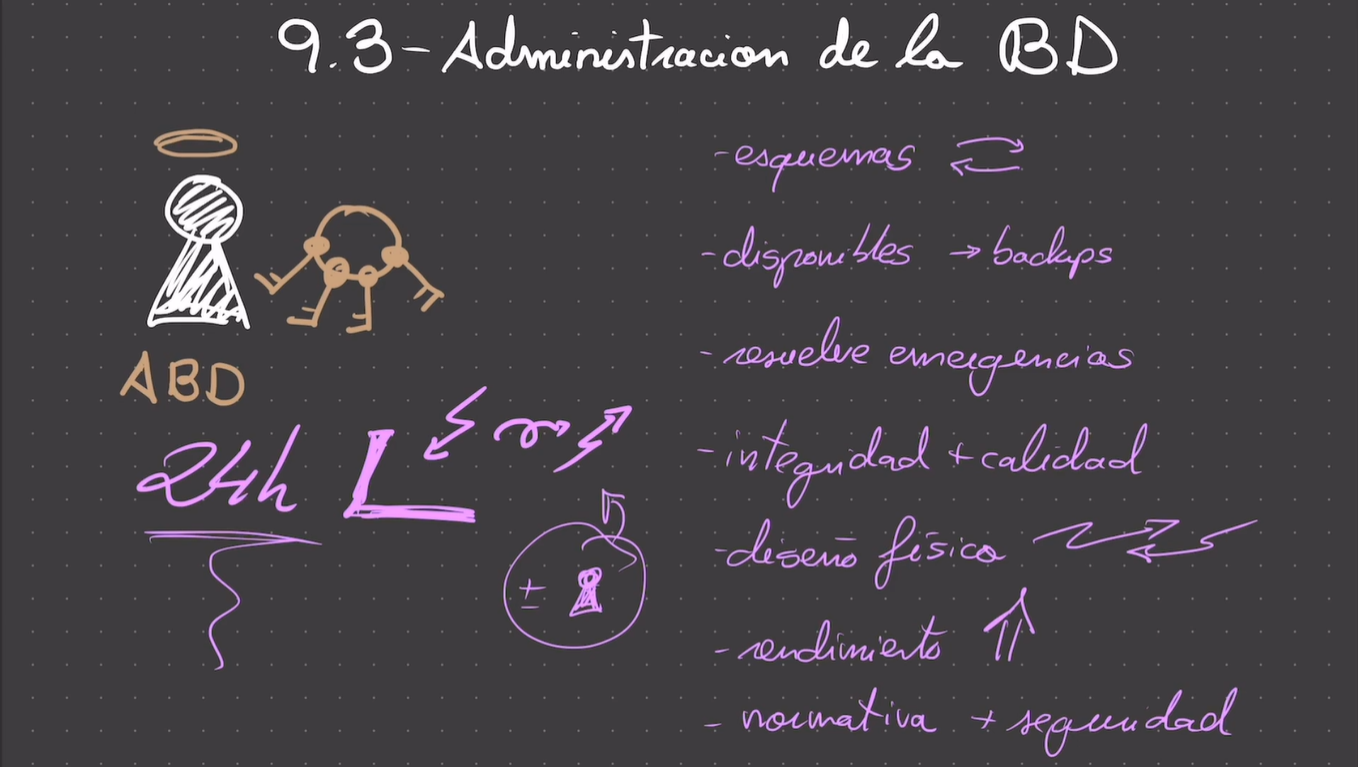 9.3-Administracion de la BD
ABD
24h
±
-esquemas
-disponibles → backups
-resuelve emergencias
-integridad + calidad
-diseño físico
-rendimiento
- normativa + seguridad